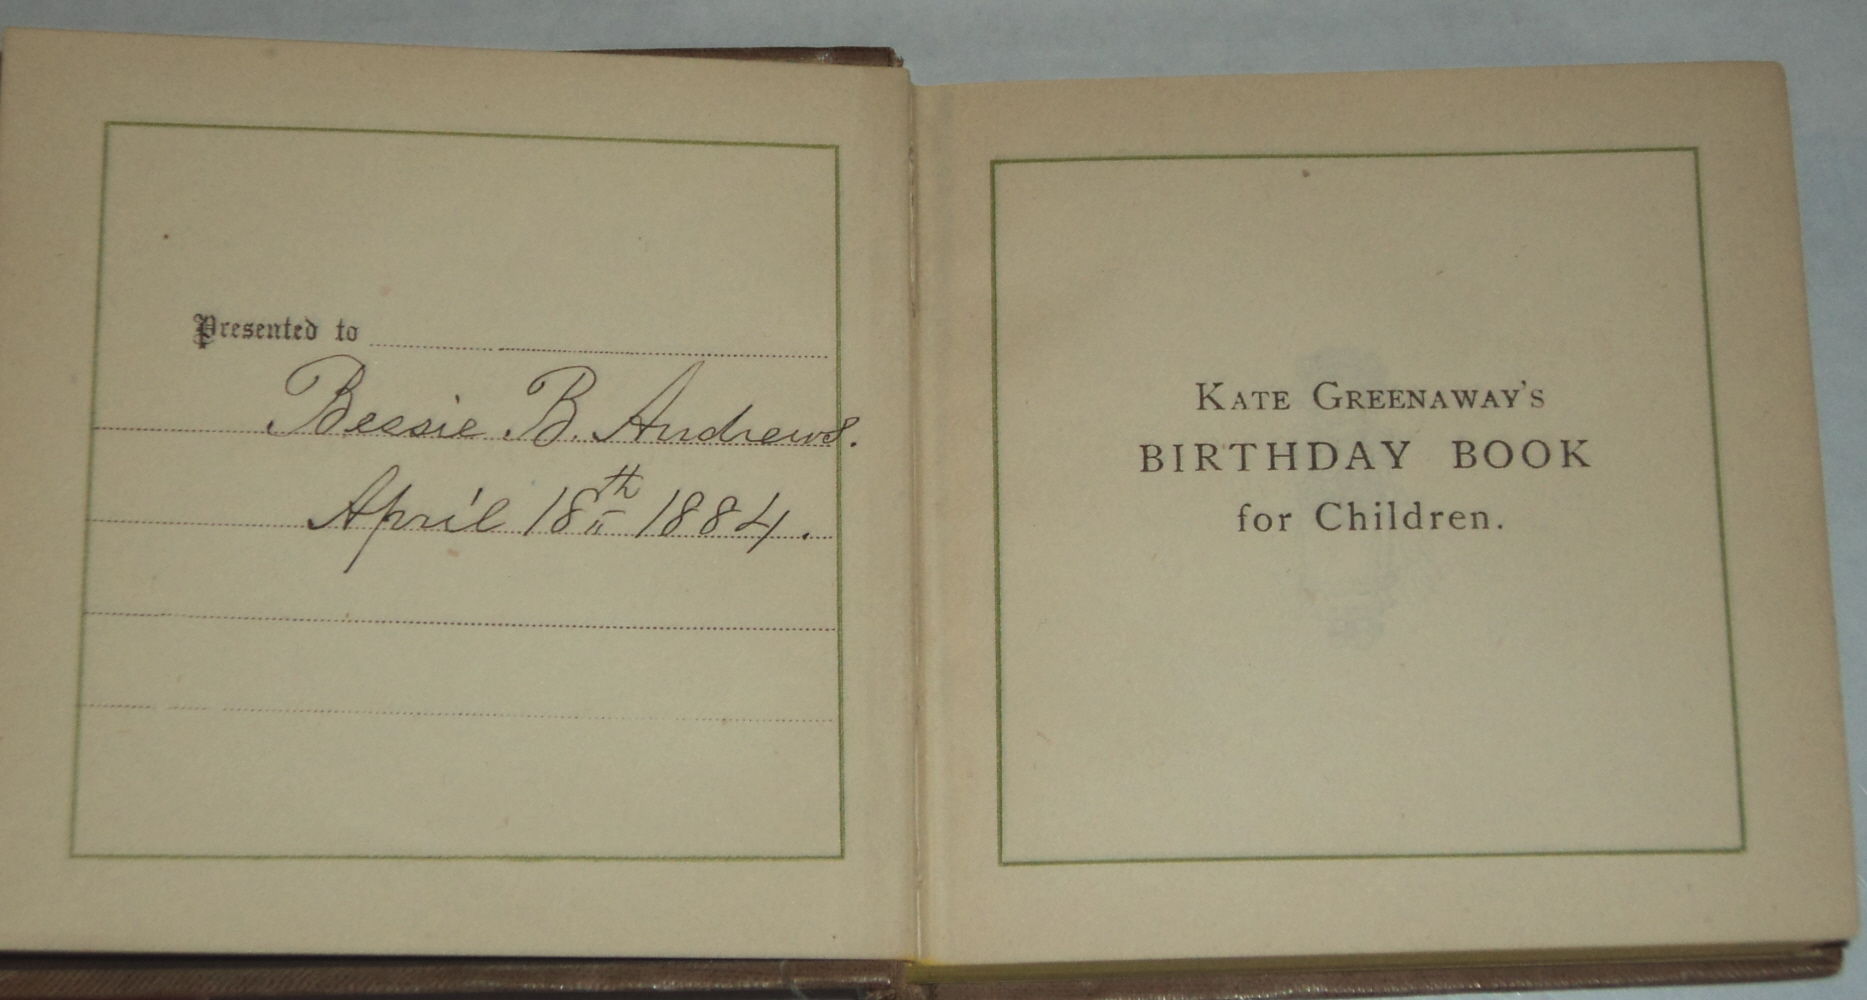 Presented to
Bessie B. Andrews.
April 18th 1884.
KATE GREENAWAY'S
BIRTHDAY BOOK
for Children.